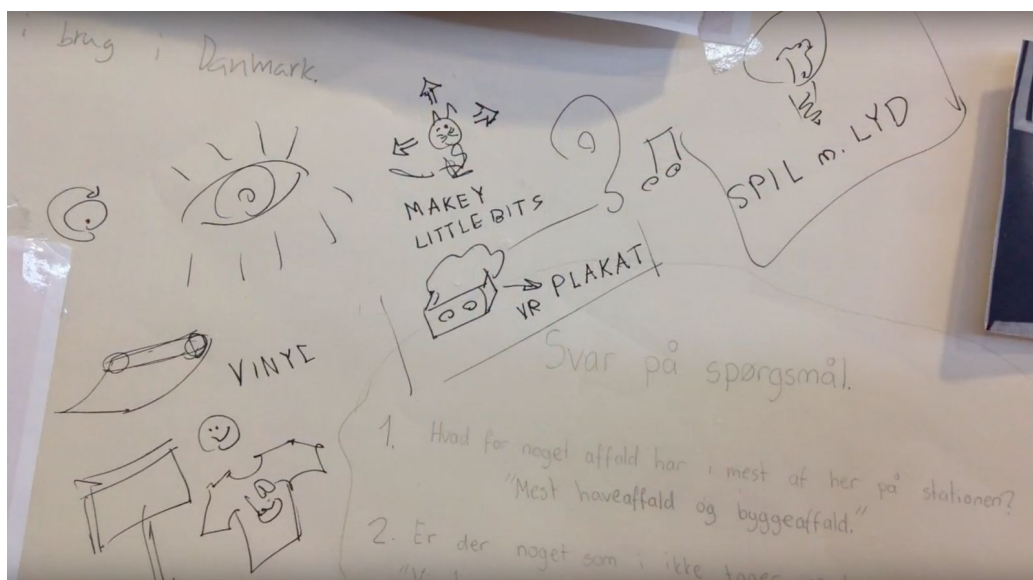 i brug i Danmark.
MAKEY
LITTLE BITS
SPIL m. LYD
VR PLAKAT
VINYL
Svar på spørgsmål.
1. Hvad for noget affald har i mest af her på stationen?
"Mest haveaffald og byggeaffald."
2. Er der noget som i ikke